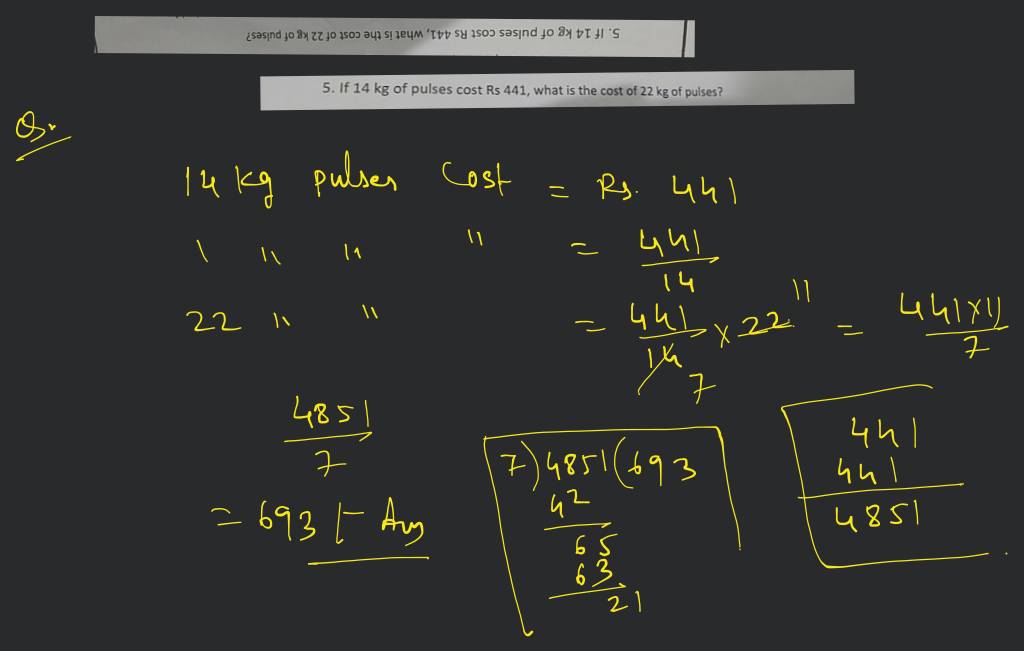 5. If 14 kg of pulses cost Rs 441, what is the cost of 22 kg of pulses?
5. If 14 kg of pulses cost Rs 441, what is the cost of 22 kg of pulses?
Q.
14 kg pulses cost = Rs. 441
1 " " " = 441/14
22 " " = 441/14 × 22 = 441×11/7
11
7
4851/7
= 693/- Ans
7)4851(693
42
65
63
21
441
441
4851